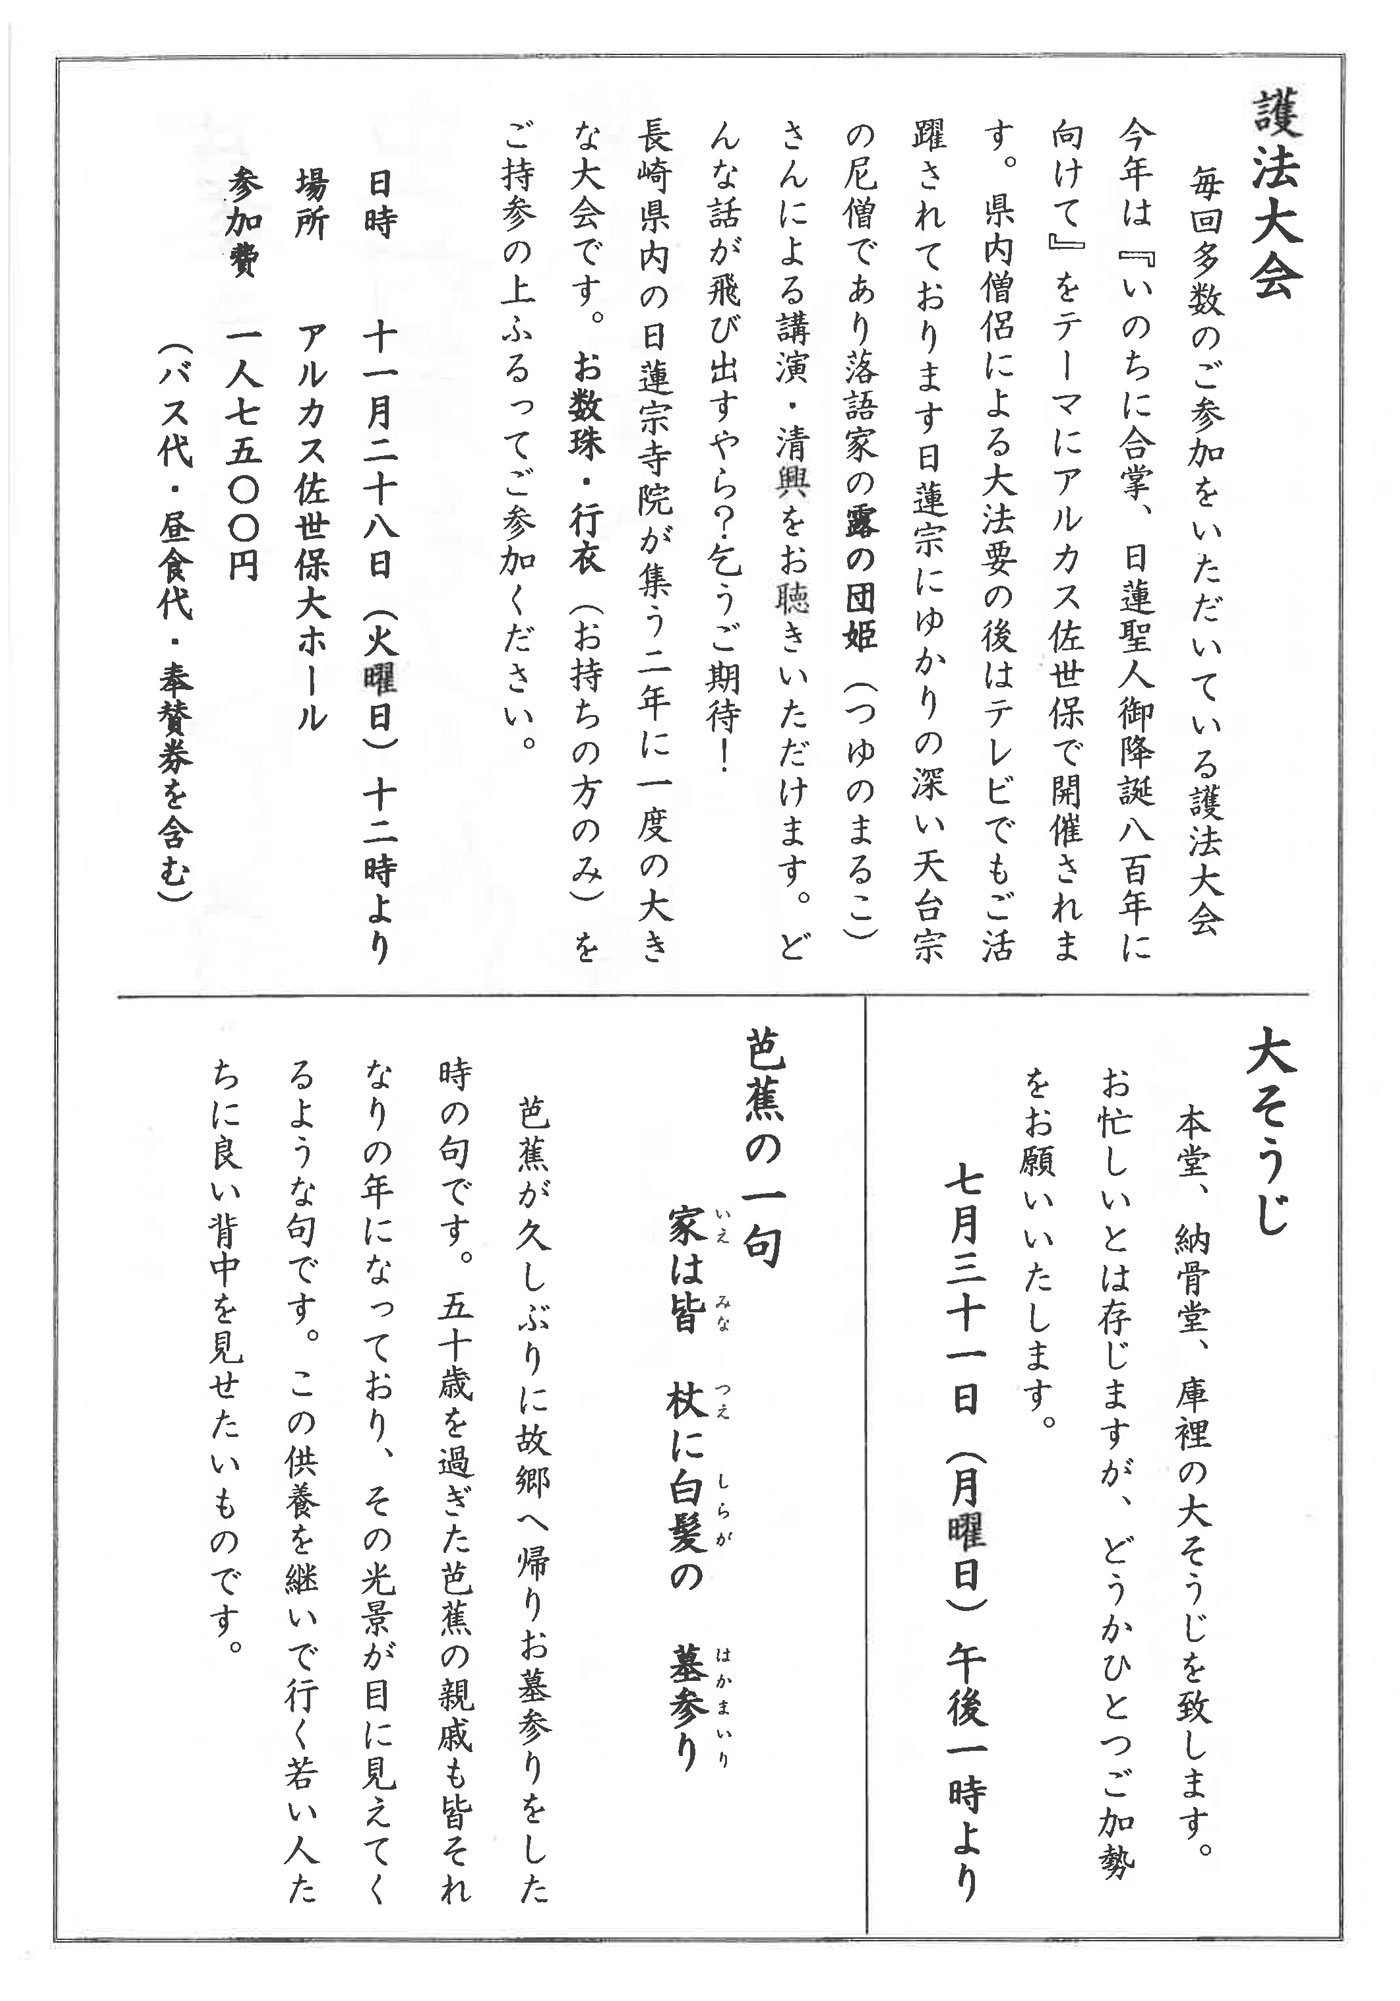 護法大会
毎回多数のご参加をいただいている護法大会
今年は『いのちに合掌、日蓮聖人御降誕八百年に
向けて』をテーマにアルカス佐世保で開催されま
す。県内僧侶による大法要の後はテレビでもご活
躍されております日蓮宗にゆかりの深い天台宗
の尼僧であり落語家の露の団姫（つゆのまるこ）
さんによる講演・清興をお聴きいただけます。ど
んな話が飛び出すやら？乞うご期待！
長崎県内の日蓮宗寺院が集う二年に一度の大き
な大会です。お数珠・行衣（お持ちの方のみ）を
ご持参の上ふるってご参加ください。
日時　十一月二十八日（火曜日）十二時より
場所　アルカス佐世保大ホール
参加費　一人七五〇〇円
（バス代・昼食代・奉賛券を含む）
大そうじ
本堂、納骨堂、庫裡の大そうじを致します。
お忙しいとは存じますが、どうかひとつご加勢
をお願いいたします。
七月三十一日（月曜日）午後一時より
芭蕉の一句
いえ　みな　つえ　しらが　はかまいり
家は皆　杖に白髪の　墓参り
芭蕉が久しぶりに故郷へ帰りお墓参りをした
時の句です。五十歳を過ぎた芭蕉の親戚も皆それ
なりの年になっており、その光景が目に見えてく
るような句です。この供養を継いで行く若い人た
ちに良い背中を見せたいものです。